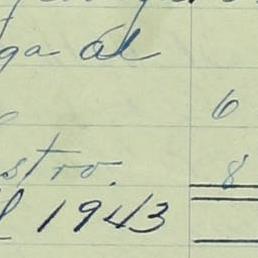 ga al
6
stro. 8
l 1943